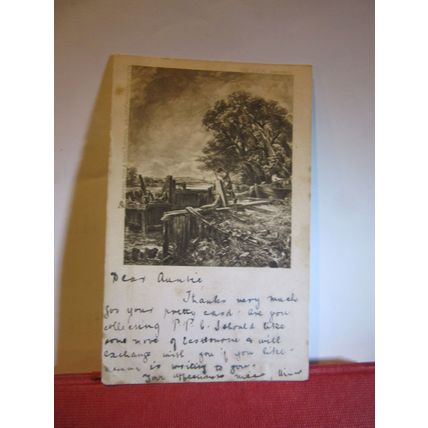 Dear Auntie
Thanks very much
for your pretty card. Are you
collecting P.P.C. I should like
some more of & will
exchange with you if you like.
is writing to you.
Your